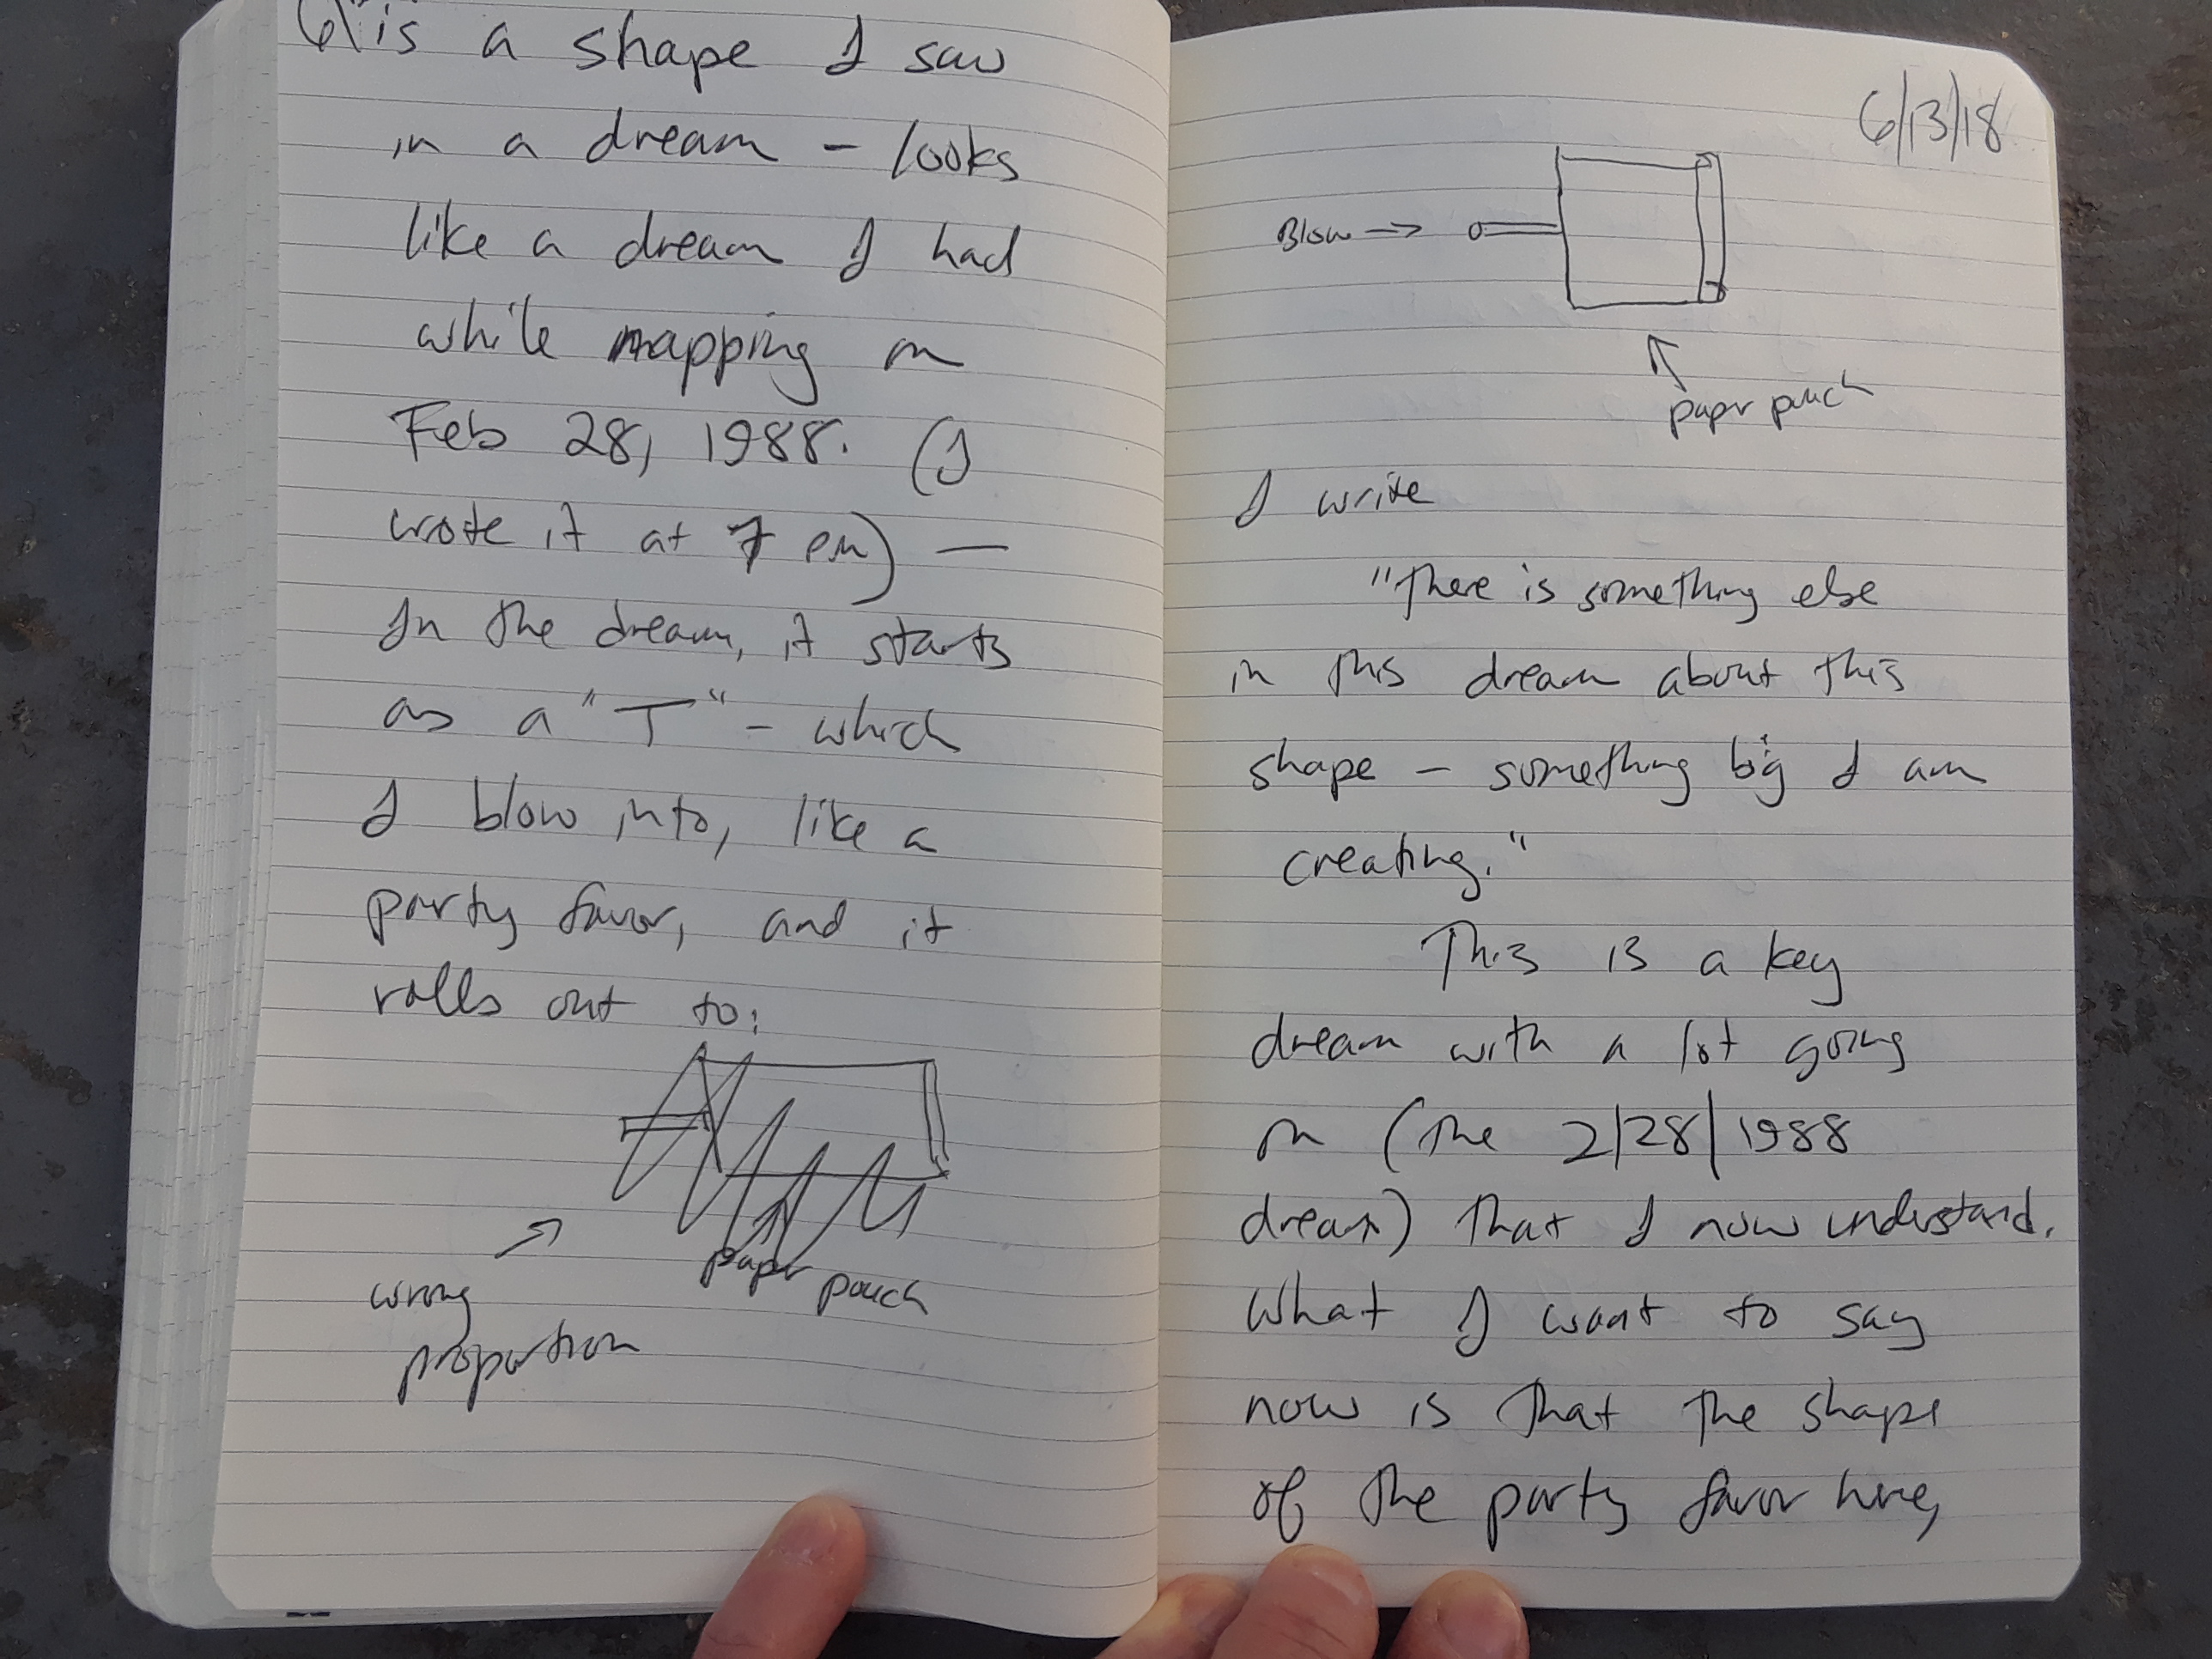 is a shape I saw
in a dream – looks
like a dream I had
while mapping on
Feb 28, 1988. (I
wrote it at 7 pm) —
In the dream, it starts
as a "T" – which
I blow into, like a
party favor, and it
rolls out to:
paper pouch
wrong
proportion
6/13/18
Blow →
paper pouch
I write
"There is something else
in this dream about this
shape – something big I am
creating."
This is a key
dream with a lot going
on (the 2/28/1988
dream) that I now understand.
What I want to say
now is that the shape
of the party favor here,